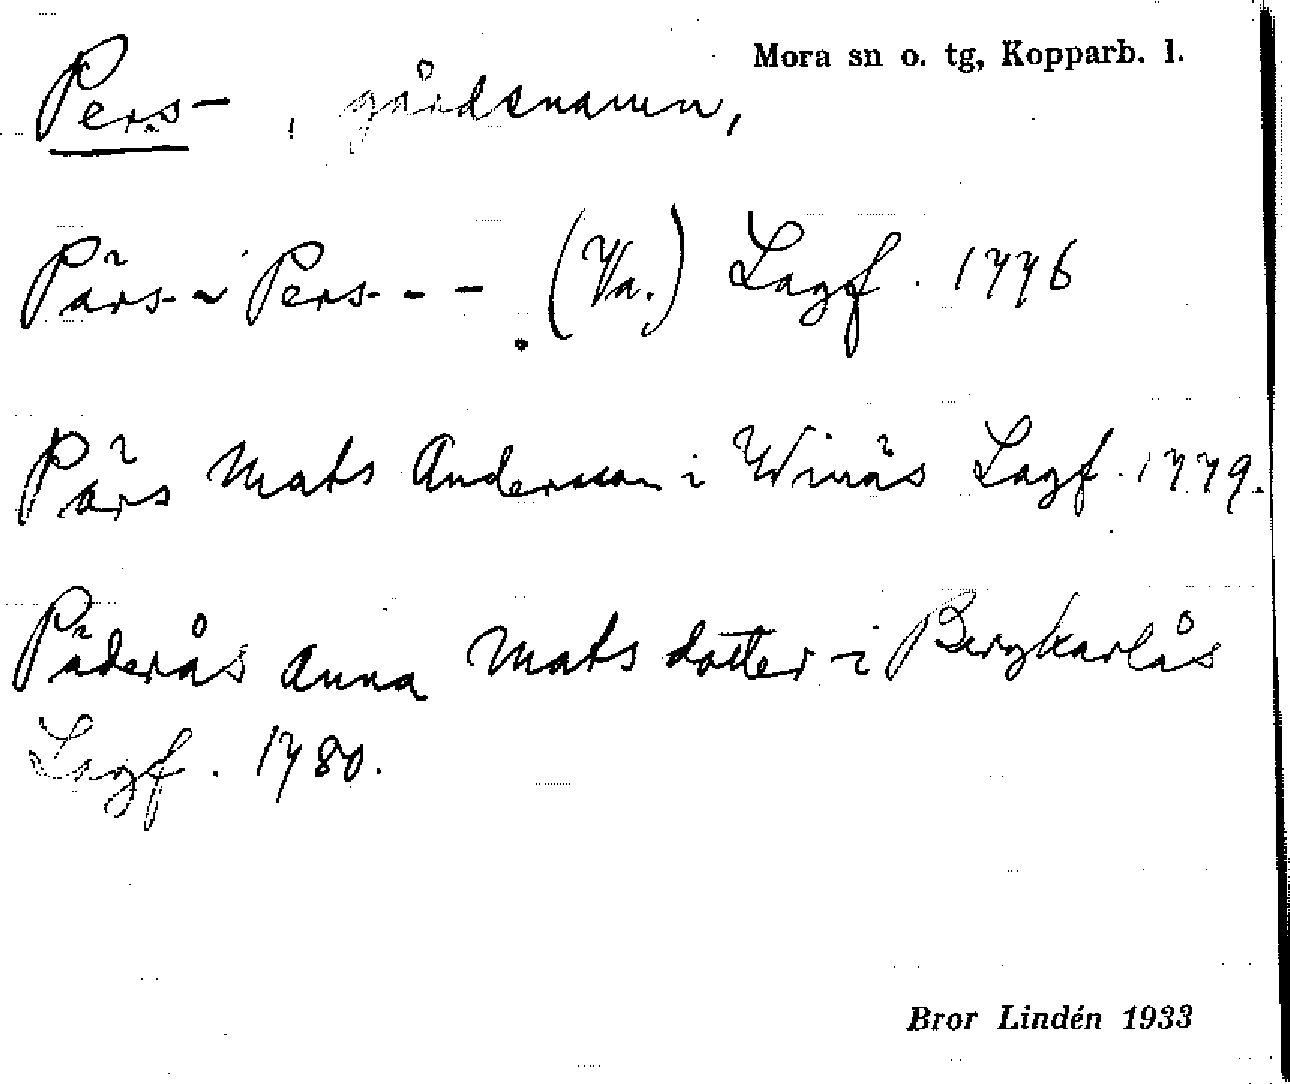 Mora sn o. tg, Kopparb. l.
Pers- , gårdsnamn,
Pärs- ~ Pers- - - . (Va.) Lagf. 1776
Pärs Mats Andersson i Winäs Lagf. 1779.
Päderås Anna Mats dotter i Bergkarlås
Lagf. 1780.
Bror Lindén 1933